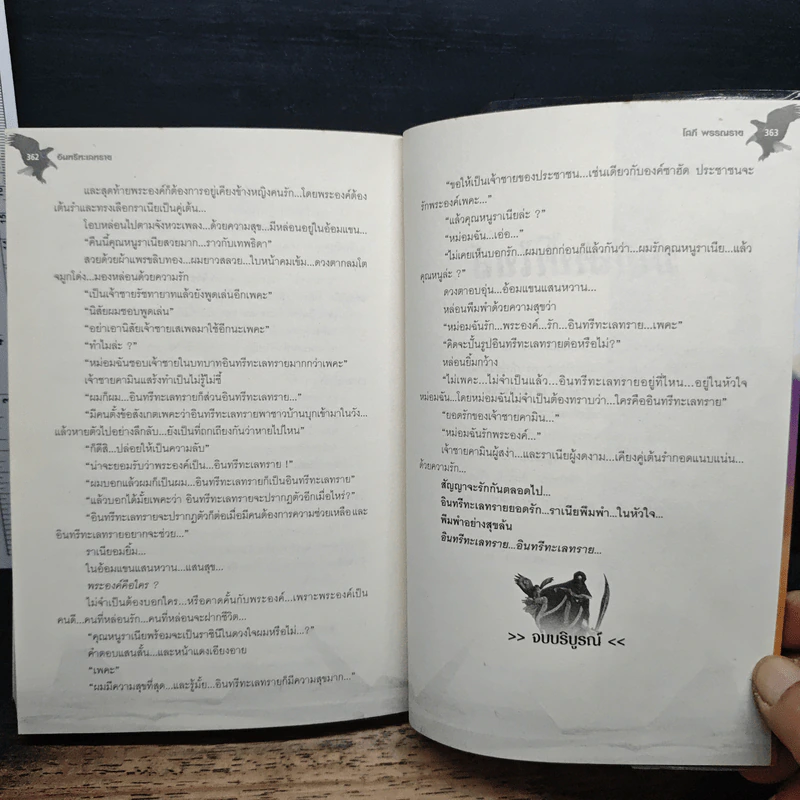 362
อินทรีทะเลทราย
และสุดท้ายพระองค์ก็ต้องการอยู่เคียงข้างหญิงคนรัก...โดยพระองค์ต้อง
เต้นรำและทรงเลือกราเนียเป็นคู่เต้น...
โอบหล่อนไปตามจังหวะเพลง...ด้วยความสุข...มีหล่อนอยู่ในอ้อมแขน...
“คืนนี้คุณหนูราเนียสวยมาก...ราวกับเทพธิดา”
สวยด้วยผ้าแพรขลิบทอง...ผมยาวสลวย...ใบหน้าคมเข้ม...ดวงตากลมโต
จมูกโด่ง...มองหล่อนด้วยความรัก
“เป็นเจ้าชายรัชทายาทแล้วยังพูดเล่นอีกเพคะ”
“นิสัยผมชอบพูดเล่น”
“อย่าเอานิสัยเจ้าชายเสเพลมาใช้อีกนะเพคะ”
“ทำไมล่ะ ?”
“หม่อมฉันชอบเจ้าชายในบทบาทอินทรีทะเลทรายมากกว่าเพคะ”
เจ้าชายคามินแสร้งทำเป็นไม่รู้ไม่ชี้
“ผมก็ผม...อินทรีทะเลทรายก็ส่วนอินทรีทะเลทราย...”
“มีคนตั้งข้อสังเกตเพคะว่าอินทรีทะเลทรายพาชาวบ้านบุกเข้ามาในวัง...
แล้วหายตัวไปอย่างลึกลับ...ยังเป็นที่ถกเถียงกันว่าหายไปไหน”
“ก็ดีสิ...ปล่อยให้เป็นความลับ”
“น่าจะยอมรับว่าพระองค์เป็น...อินทรีทะเลทราย !”
“ผมบอกแล้วผมก็เป็นผม...อินทรีทะเลทรายก็เป็นอินทรีทะเลทราย”
“แล้วบอกได้มั้ยเพคะว่า อินทรีทะเลทรายจะปรากฏตัวอีกเมื่อไหร่?”
“อินทรีทะเลทรายจะปรากฏตัวก็ต่อเมื่อมีคนต้องการความช่วยเหลือและ
อินทรีทะเลทรายอยากจะช่วย...”
ราเนียอมยิ้ม...
ในอ้อมแขนแสนหวาน...แสนสุข...
พระองค์คือใคร ?
ไม่จำเป็นต้องบอกใคร...หรือคาดคั้นกับพระองค์...เพราะพระองค์เป็น
คนดี...คนที่หล่อนรัก...คนที่หล่อนจะฝากชีวิต...
“คุณหนูราเนียพร้อมจะเป็นราชินีในดวงใจผมหรือไม่...?”
คำตอบแสนสั้น...และหน้าแดงเอียงอาย
“เพคะ”
“ผมมีความสุขที่สุด...และรู้มั้ย...อินทรีทะเลทรายก็มีความสุขมาก...”
โสภี พรรณราย
363
“ขอให้เป็นเจ้าชายของประชาชน...เช่นเดียวกับองค์ซาฮัด ประชาชนจะ
รักพระองค์เพคะ...”
“แล้วคุณหนูราเนียล่ะ ?”
“หม่อมฉัน...เอ่อ...”
“ไม่เคยเห็นบอกรัก...ผมบอกก่อนก็แล้วกันว่า...ผมรักคุณหนูราเนีย...แล้ว
คุณหนูล่ะ ?”
ดวงตาอบอุ่น...อ้อมแขนแสนหวาน...
หล่อนพึมพำด้วยความสุขว่า
“หม่อมฉันรัก...พระองค์...รัก...อินทรีทะเลทราย...เพคะ”
“คิดจะปั้นรูปอินทรีทะเลทรายต่อหรือไม่?”
หล่อนยิ้มกว้าง
“ไม่เพคะ...ไม่จำเป็นแล้ว...อินทรีทะเลทรายอยู่ที่ไหน...อยู่ในหัวใจ
หม่อมฉัน...โดยหม่อมฉันไม่จำเป็นต้องทราบว่า...ใครคืออินทรีทะเลทราย”
“ยอดรักของเจ้าชายคามิน...”
“หม่อมฉันรักพระองค์...”
เจ้าชายคามินผู้สง่า...และราเนียผู้งดงาม...เคียงคู่เต้นรำกอดแนบแน่น...
ด้วยความรัก...
สัญญาจะรักกันตลอดไป...
อินทรีทะเลทรายยอดรัก...ราเนียพึมพำ...ในหัวใจ...
พึมพำอย่างสุขล้น
อินทรีทะเลทราย...อินทรีทะเลทราย...
>> จบบริบูรณ์ <<